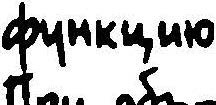 функцию
При